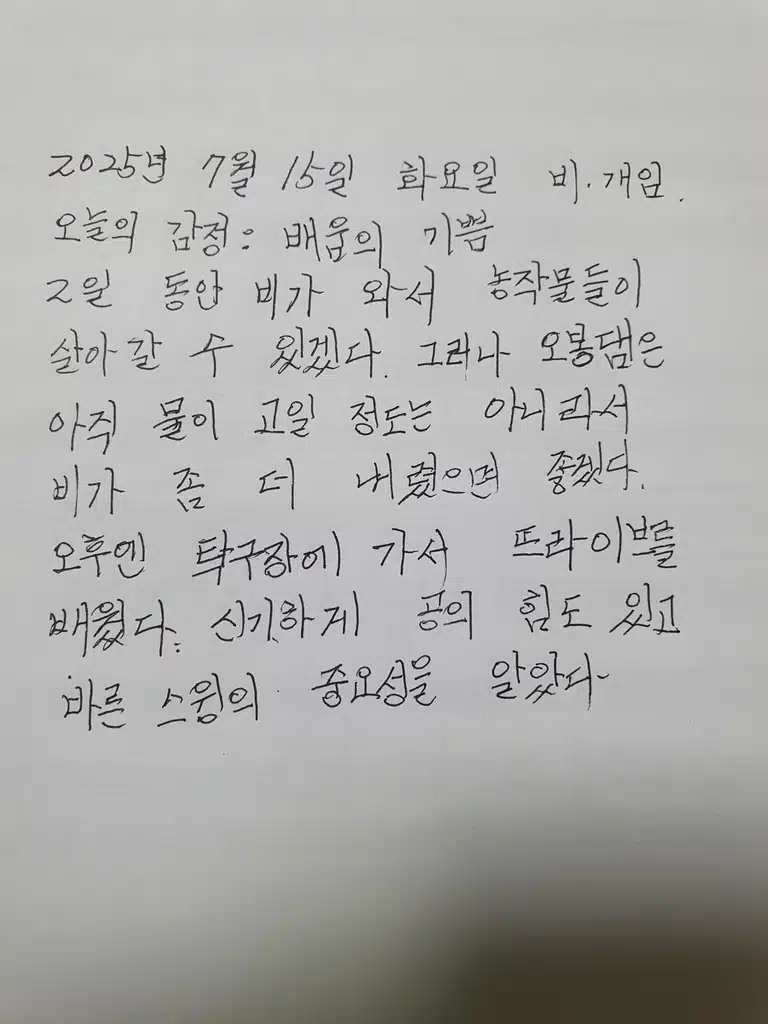 2025년 7월 15일 화요일 비.개임.
오늘의 감정: 배움의 기쁨
2일 동안 비가 와서 농작물들이
살아갈 수 있겠다. 그러나 오봉댐은
아직 물이 고일 정도는 아니라서
비가 좀 더 내렸으면 좋겠다.
오후엔 탁구장에 가서 뜨라이브를
배웠다. 신기하게 공의 힘도 있고
바른 스윙의 중요성을 알았다